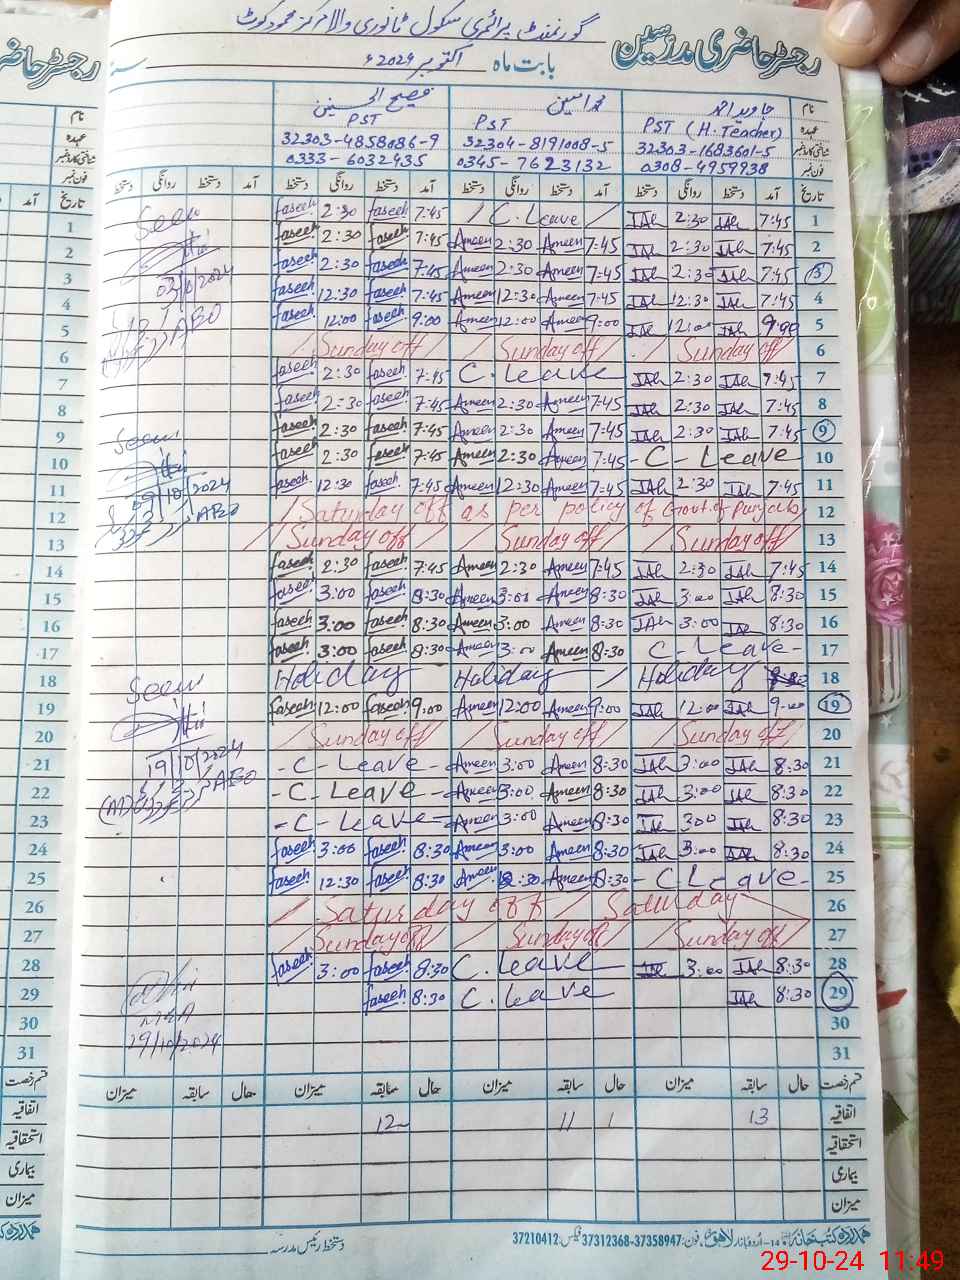 رجسٹر حاضری مدرسین
گورنمنٹ پرائمری سکول ٹانوری والا مرکز محمود کوٹ
بابت ماہ اکتوبر 2024ء
نام جاوید احمد محمد امین فصیح الحسنین
عہدہ PST (H. Teacher) PST PST
شناختی کارڈ نمبر 32303-1683601-5 32304-8191008-5 32303-4858086-9
فون نمبر 0308-4959938 0345-7623132 0333-6032435
تاریخ آمد دستخط روانگی دستخط آمد دستخط روانگی دستخط آمد دستخط روانگی دستخط آمد دستخط روانگی دستخط
1 7:45 JAh 2:30 JAh / C. Leave / 7:45 faseeh 2:30 faseeh
2 7:45 JAh 2:30 JAh 7:45 Ameen 2:30 Ameen 7:45 faseeh 2:30 faseeh
3 7:45 JAh 2:30 JAh 7:45 Ameen 2:30 Ameen 7:45 faseeh 2:30 faseeh
4 7:45 JAh 12:30 JAh 7:45 Ameen 12:30 Ameen 7:45 faseeh 12:30 faseeh
5 9:00 JAh 12:00 JAh 9:00 Ameen 12:00 Ameen 9:00 faseeh 12:00 faseeh
6 / Sunday off / / Sunday off / / Sunday off /
7 7:45 JAh 2:30 JAh C. Leave 7:45 faseeh 2:30 faseeh
8 7:45 JAh 2:30 JAh 7:45 Ameen 2:30 Ameen 7:45 faseeh 2:30 faseeh
9 7:45 JAh 2:30 JAh 7:45 Ameen 2:30 Ameen 7:45 faseeh 2:30 faseeh
10 - C - Leave 7:45 Ameen 2:30 Ameen 7:45 faseeh 2:30 faseeh
11 7:45 JAh 2:30 JAh 7:45 Ameen 12:30 Ameen 7:45 faseeh 12:30 faseeh
12 / Saturday off as per policy of Govt. of Punjab /
13 / Sunday off / / Sunday off / / Sunday off /
14 7:45 JAh 2:30 JAh 7:45 Ameen 2:30 Ameen 7:45 faseeh 2:30 faseeh
15 8:30 JAh 3:00 JAh 8:30 Ameen 3:00 Ameen 8:30 faseeh 3:00 faseeh
16 8:30 JAh 3:00 JAh 8:30 Ameen 3:00 Ameen 8:30 faseeh 3:00 faseeh
17 C - Leave - 8:30 Ameen 3:00 Ameen 8:30 faseeh 3:00 faseeh
18 Holiday Holiday Holiday
19 9:00 JAh 12:00 JAh 9:00 Ameen 12:00 Ameen 9:00 faseeh 12:00 faseeh
20 / Sunday off / / Sunday off / / Sunday off /
21 8:30 JAh 3:00 JAh 8:30 Ameen 3:00 Ameen - C - Leave -
22 8:30 JAh 3:00 JAh 8:30 Ameen 3:00 Ameen - C - Leave -
23 8:30 JAh 3:00 JAh 8:30 Ameen 3:00 Ameen - C - Leave -
24 8:30 JAh 3:00 JAh 8:30 Ameen 3:00 Ameen 8:30 faseeh 3:00 faseeh
25 - C Leave - 8:30 Ameen 12:30 Ameen 8:30 faseeh 12:30 faseeh
26 / Saturday off / Saturday
27 / Sunday off / / Sunday off / / Sunday off /
28 8:30 JAh 3:00 JAh C. Leave 8:30 faseeh 3:00 faseeh
29 8:30 JAh C. Leave 8:30 faseeh
30
31
Seen
03/10/2024
AEO
Seen
09/10/2024
AEO
Seen
19/10/2024
AEO
MEA
29/10/2024
قسم رخصت حال سابقہ میزان حال سابقہ میزان حال سابقہ میزان
اتفاقیہ 13 1 11 12
استحقاقیہ
بیماری
میزان
ہمدرد کتب خانہ 14-اردو بازار لاہور فون: 37358947-37312368 فیکس: 37210412
دستخط رئیس مدرسہ
29-10-24 11:49